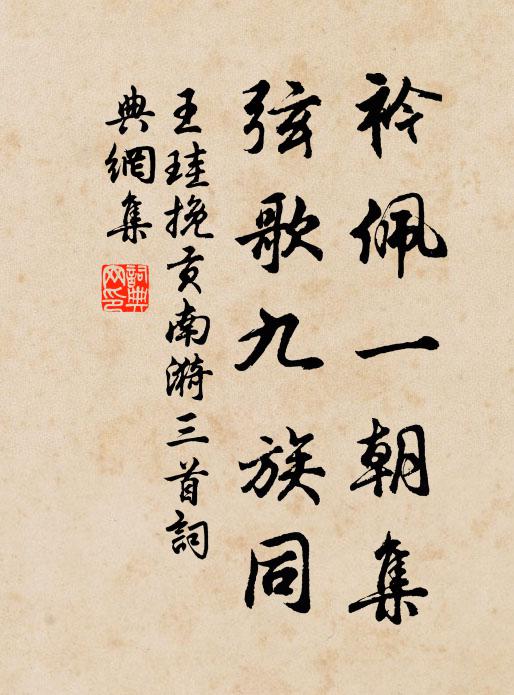 衿佩一朝集
弦歌九族同
王珪挽贡南漪三首詞
典網集
詞典網印